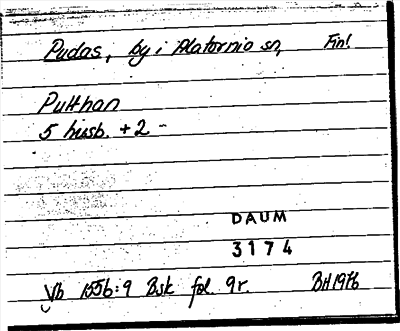 Pudas, by i Alatornio sn, Finl.
Putthan
5 husb. + 2 -
DAUM
3174
Vb 1556:9 Bsk fol. 9r. BH 1976